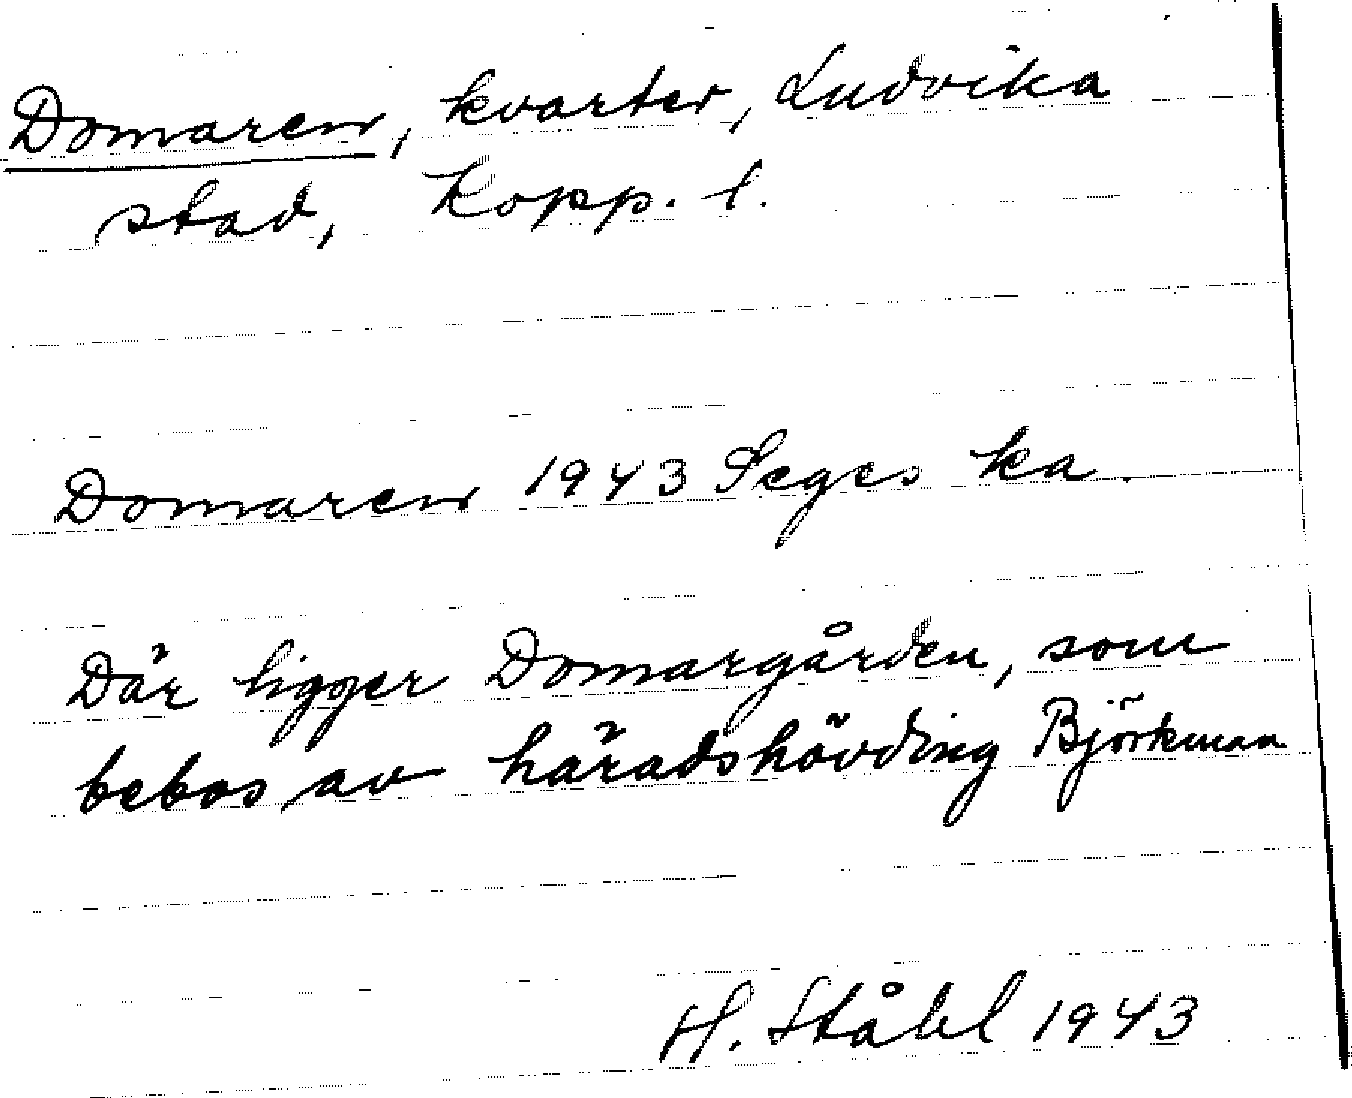 Domaren, kvarter, Ludvika
stad, Kopp. l.
Domaren 1943 Seges ka.
Där ligger Domargården, som
bebos av häradshövding Björkman
H. Ståhl 1943